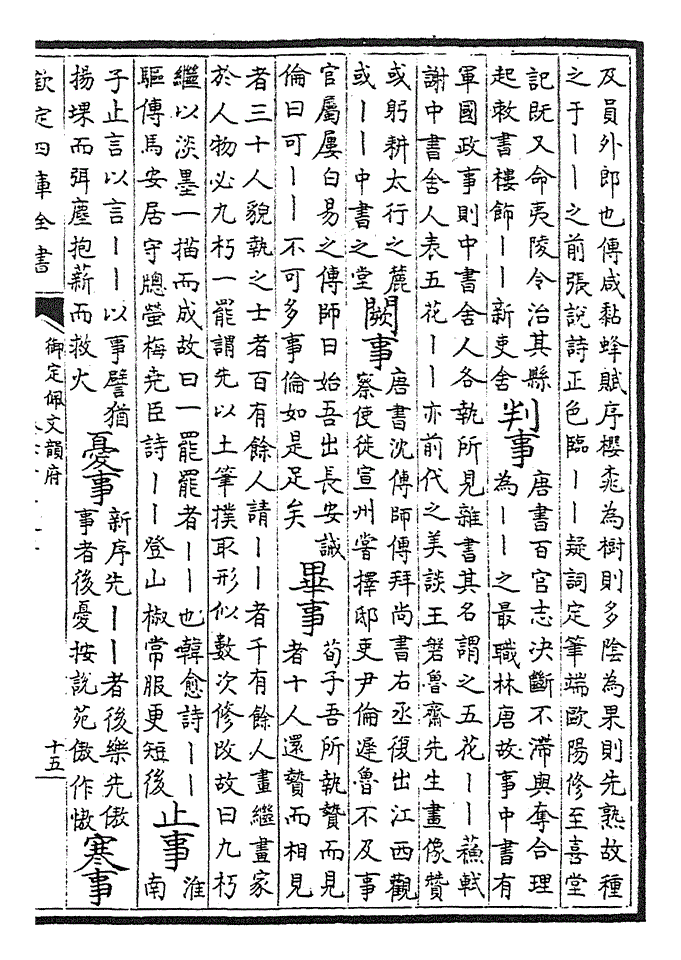 及員外郎也傳咸黏蜂賦序櫻桃為樹則多陰為果則先熟故種
之于丨丨之前張說詩正色臨丨丨疑詞定筆端歐陽修至喜堂
記既又命夷陵令治其縣
起敕書樓飾丨丨新吏舍
判事
唐書百官志決斷不滯與奪合理
為丨丨之最職林唐故事中書有
軍國政事則中書舍人各執所見雜書其名謂之五花丨丨蘓軾
謝中書舍人表五花丨丨亦前代之美談王磐魯齋先生畫像贊
或躬耕太行之麓
或丨丨中書之堂
闕事
唐書沈傳師傳拜尚書右丞復出江西觀
察使徙宣州嘗擇邸吏尹倫遲魯不及事
官屬屢白易之傳師曰始吾出長安誡
倫曰可丨丨不可多事倫如是足矣
畢事
荀子吾所執贄而見
者十人還贄而相見
者三十人貌執之士者百有餘人請丨丨者千有餘人畫繼畫家
於人物必九朽一罷謂先以土筆撲取形似數次修改故曰九朽
繼以淡墨一描而成故曰一罷罷者丨丨也韓愈詩丨丨
驅傳馬安居守牕螢梅堯臣詩丨丨登山椒常服更短後
止事
淮
南
子止言以言丨丨以事譬猶
揚堁而弭塵抱薪而救火
憂事
新序先丨丨者後樂先傲
事者後憂按說苑傲作慠
寒事
欽定四庫全書
御定佩文韻府
十五